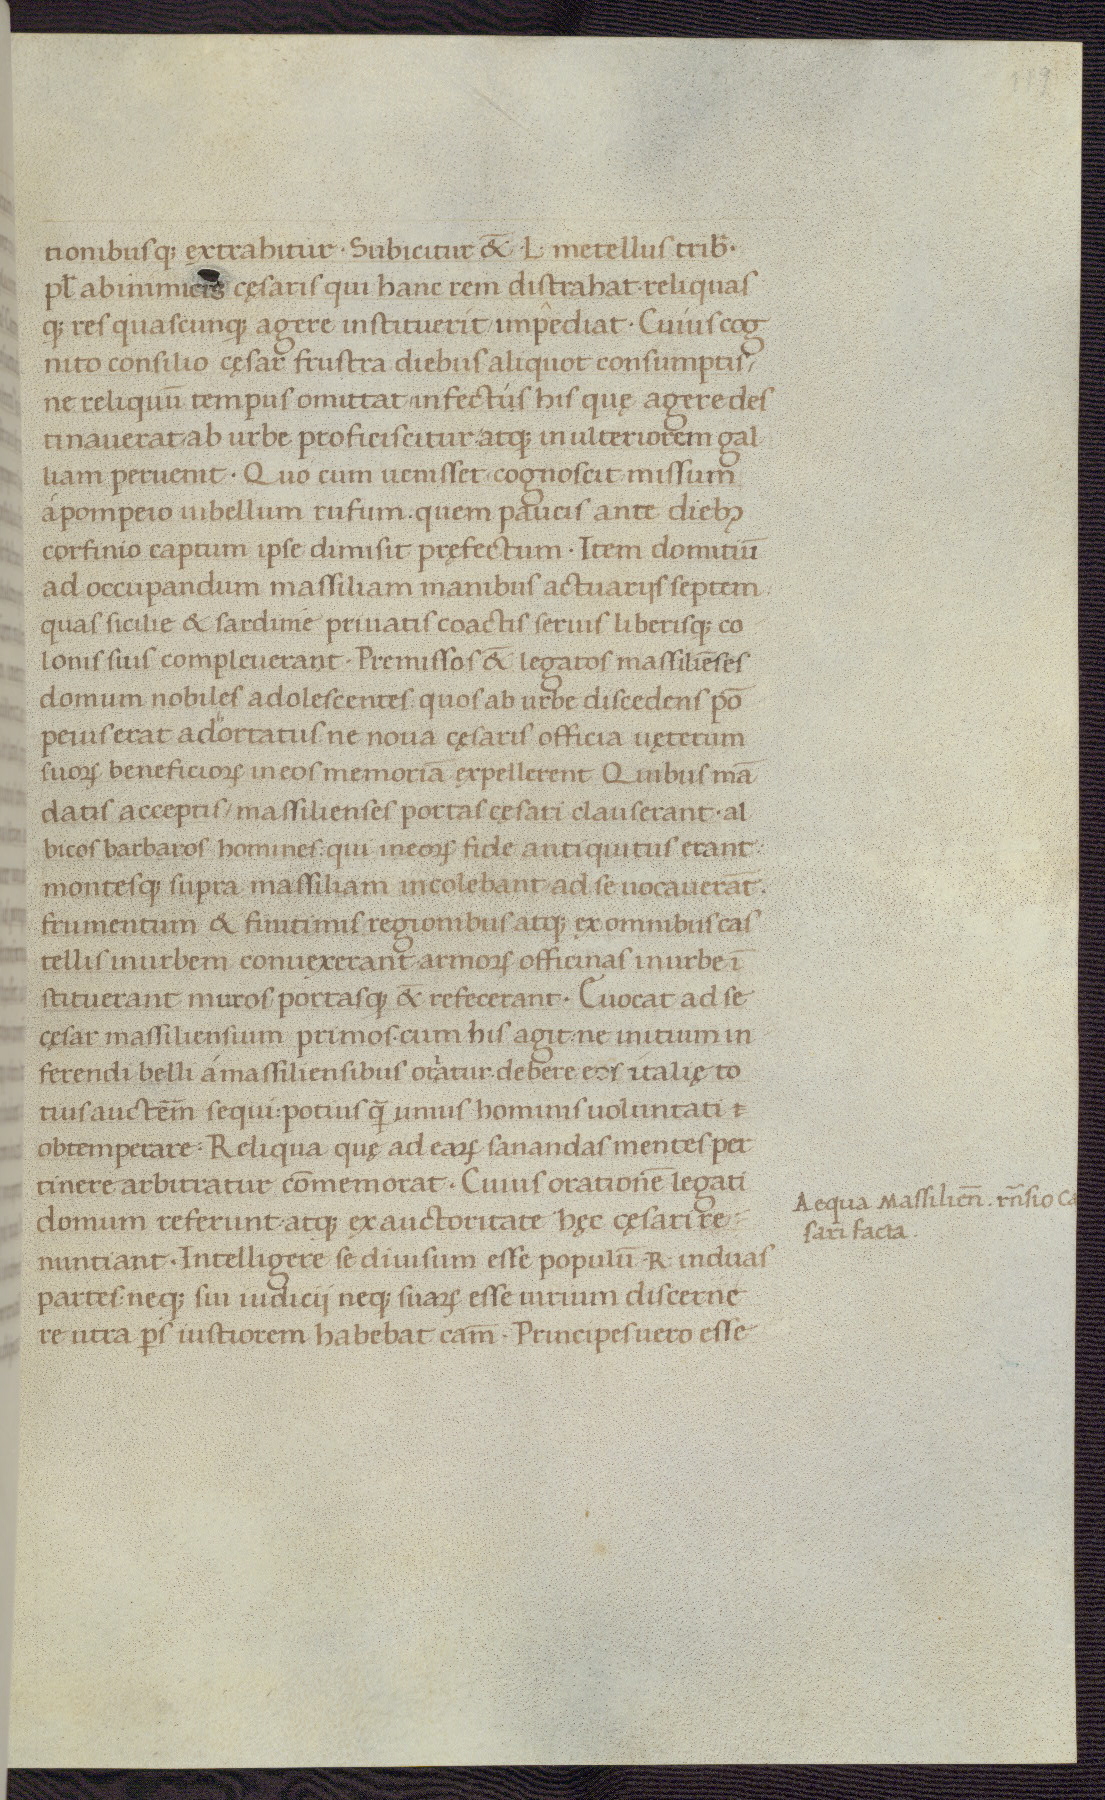 tionibusq; ęxtrahitur · Subicitur &̄ · L · metellus trib̄ ·
pl̄ ab inimicis cęsaris qui hanc rem distrahat · reliquas
q; res quascunq; agere instituerit impediat · Cuius cog
nito consilio cęsar frustra diebus aliquot consumptis /
ne reliquū tempus omittat infectis his quę agere des
tinauerat ab urbe proficiscitur · atq; in ulteriorem gal
liam peruenit · Quo cum uenisset cognoscit missum
á pompeio uibellum rufum · quem paucis ante dieb;
corfinio captum ipse dimisit pręfectum · Item domitiū
ad occupandum massiliam manibus actuarijs septem ·
quas sicilie & sardinie priuatis coactis seruis liberisq; co
lonis suis compleuerant · Premissos &̄ legatos massiliēses
domum nobiles adolescentes · quos ab urbe discedens pō
peius erat adhortatus ne noua cęsaris officia uęterum
suoꝝ beneficioꝝ in eos memoriā ęxpellerent Quibus mā
datis acceptis / massilienses portas cęsari clauserant · al
bicos barbaros homines · qui in eoꝝ fide antiquitus erant ·
montesq; supra massiliam incolebant ad se uocauerāt ·
frumentum & finitimis regionibus atq; ęx omnibus cas
tellis in urbem conuęxerant armoꝝ officinas in urbe ī
stituerant muros portasq; &̄ refecerant · Euocat ad se
cęsar massiliensium primos · cum his agit · ne initium in
ferendi belli á massiliensibus oriatur · debere eos italię to
tius auctēm sequi · potius q̄ unius hominis uoluntati t
obtemperare · Reliqua quę ad eaꝝ sanandas mentes per
tinere arbitratur cōmemorat · Cuius orationē legati
domum referunt · atq; ęx auctoritate hęc cęsari re
nuntiant · Intelligere se diuisum esse populū · R · in duas
partes · neq; sui iudicij neq; suaꝝ esse uirium discerne
re utra pꝰs iustiorem habebat cām · Principes uero esse
Aequa Massilien̄ · rn̄sio Ca
sari facta ·